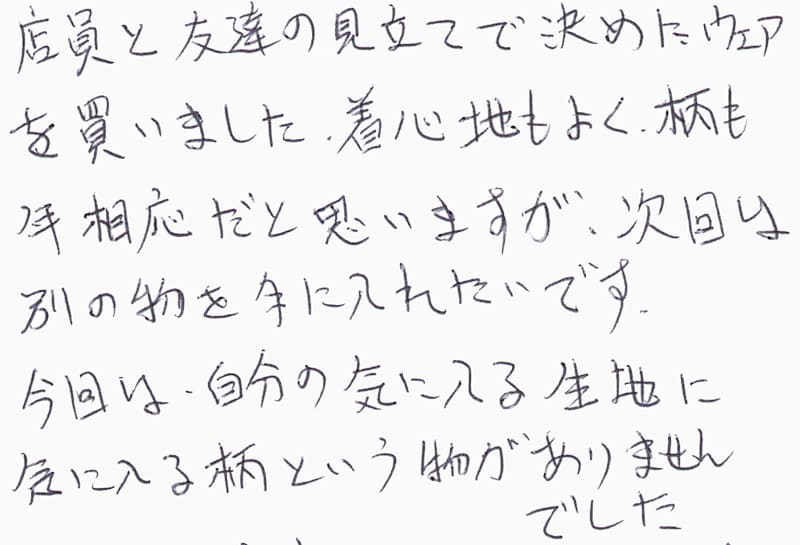 店員と友達の見立てで決めたウェア
を買いました。着心地もよく、柄も
年相応だと思いますが、次回は
別の物を手に入れたいです。
今回は、自分の気に入る生地に
気に入る柄という物がありません
でした